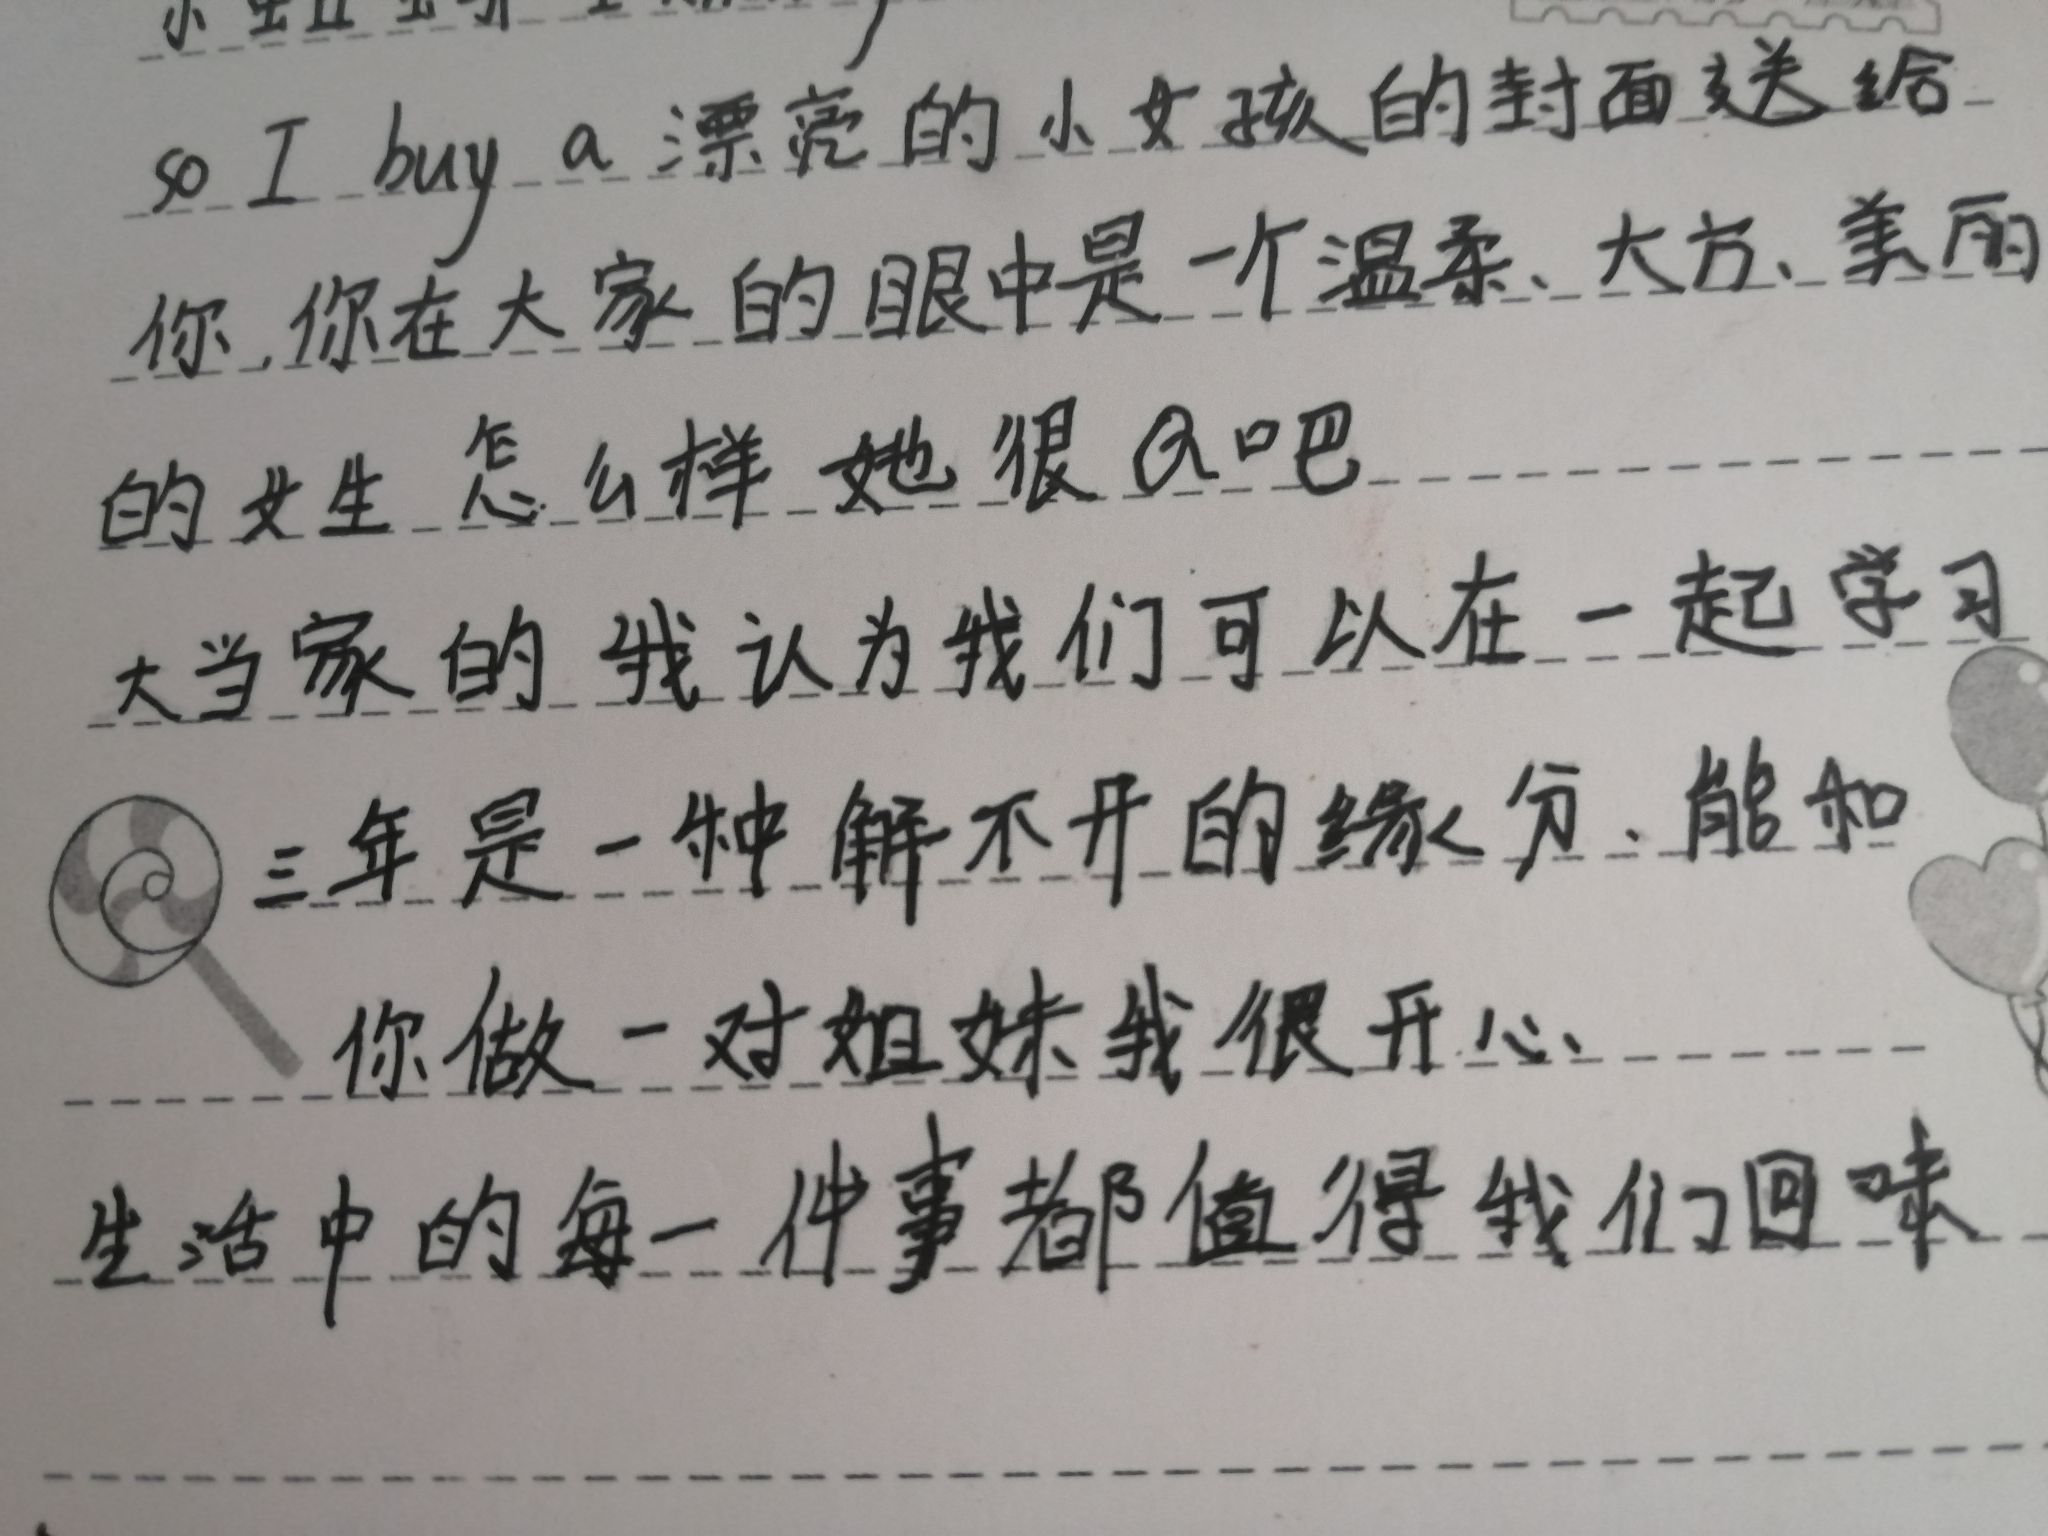 so I buy a 漂亮的小女孩的封面送给
你.你在大家的眼中是一个温柔、大方、美丽
的女生 怎么样 她很Q吧
大当家的 我认为我们可以在一起学习
三年是一种解不开的缘分、能和
你做一对姐妹我很开心、
生活中的每一件事都值得我们回味